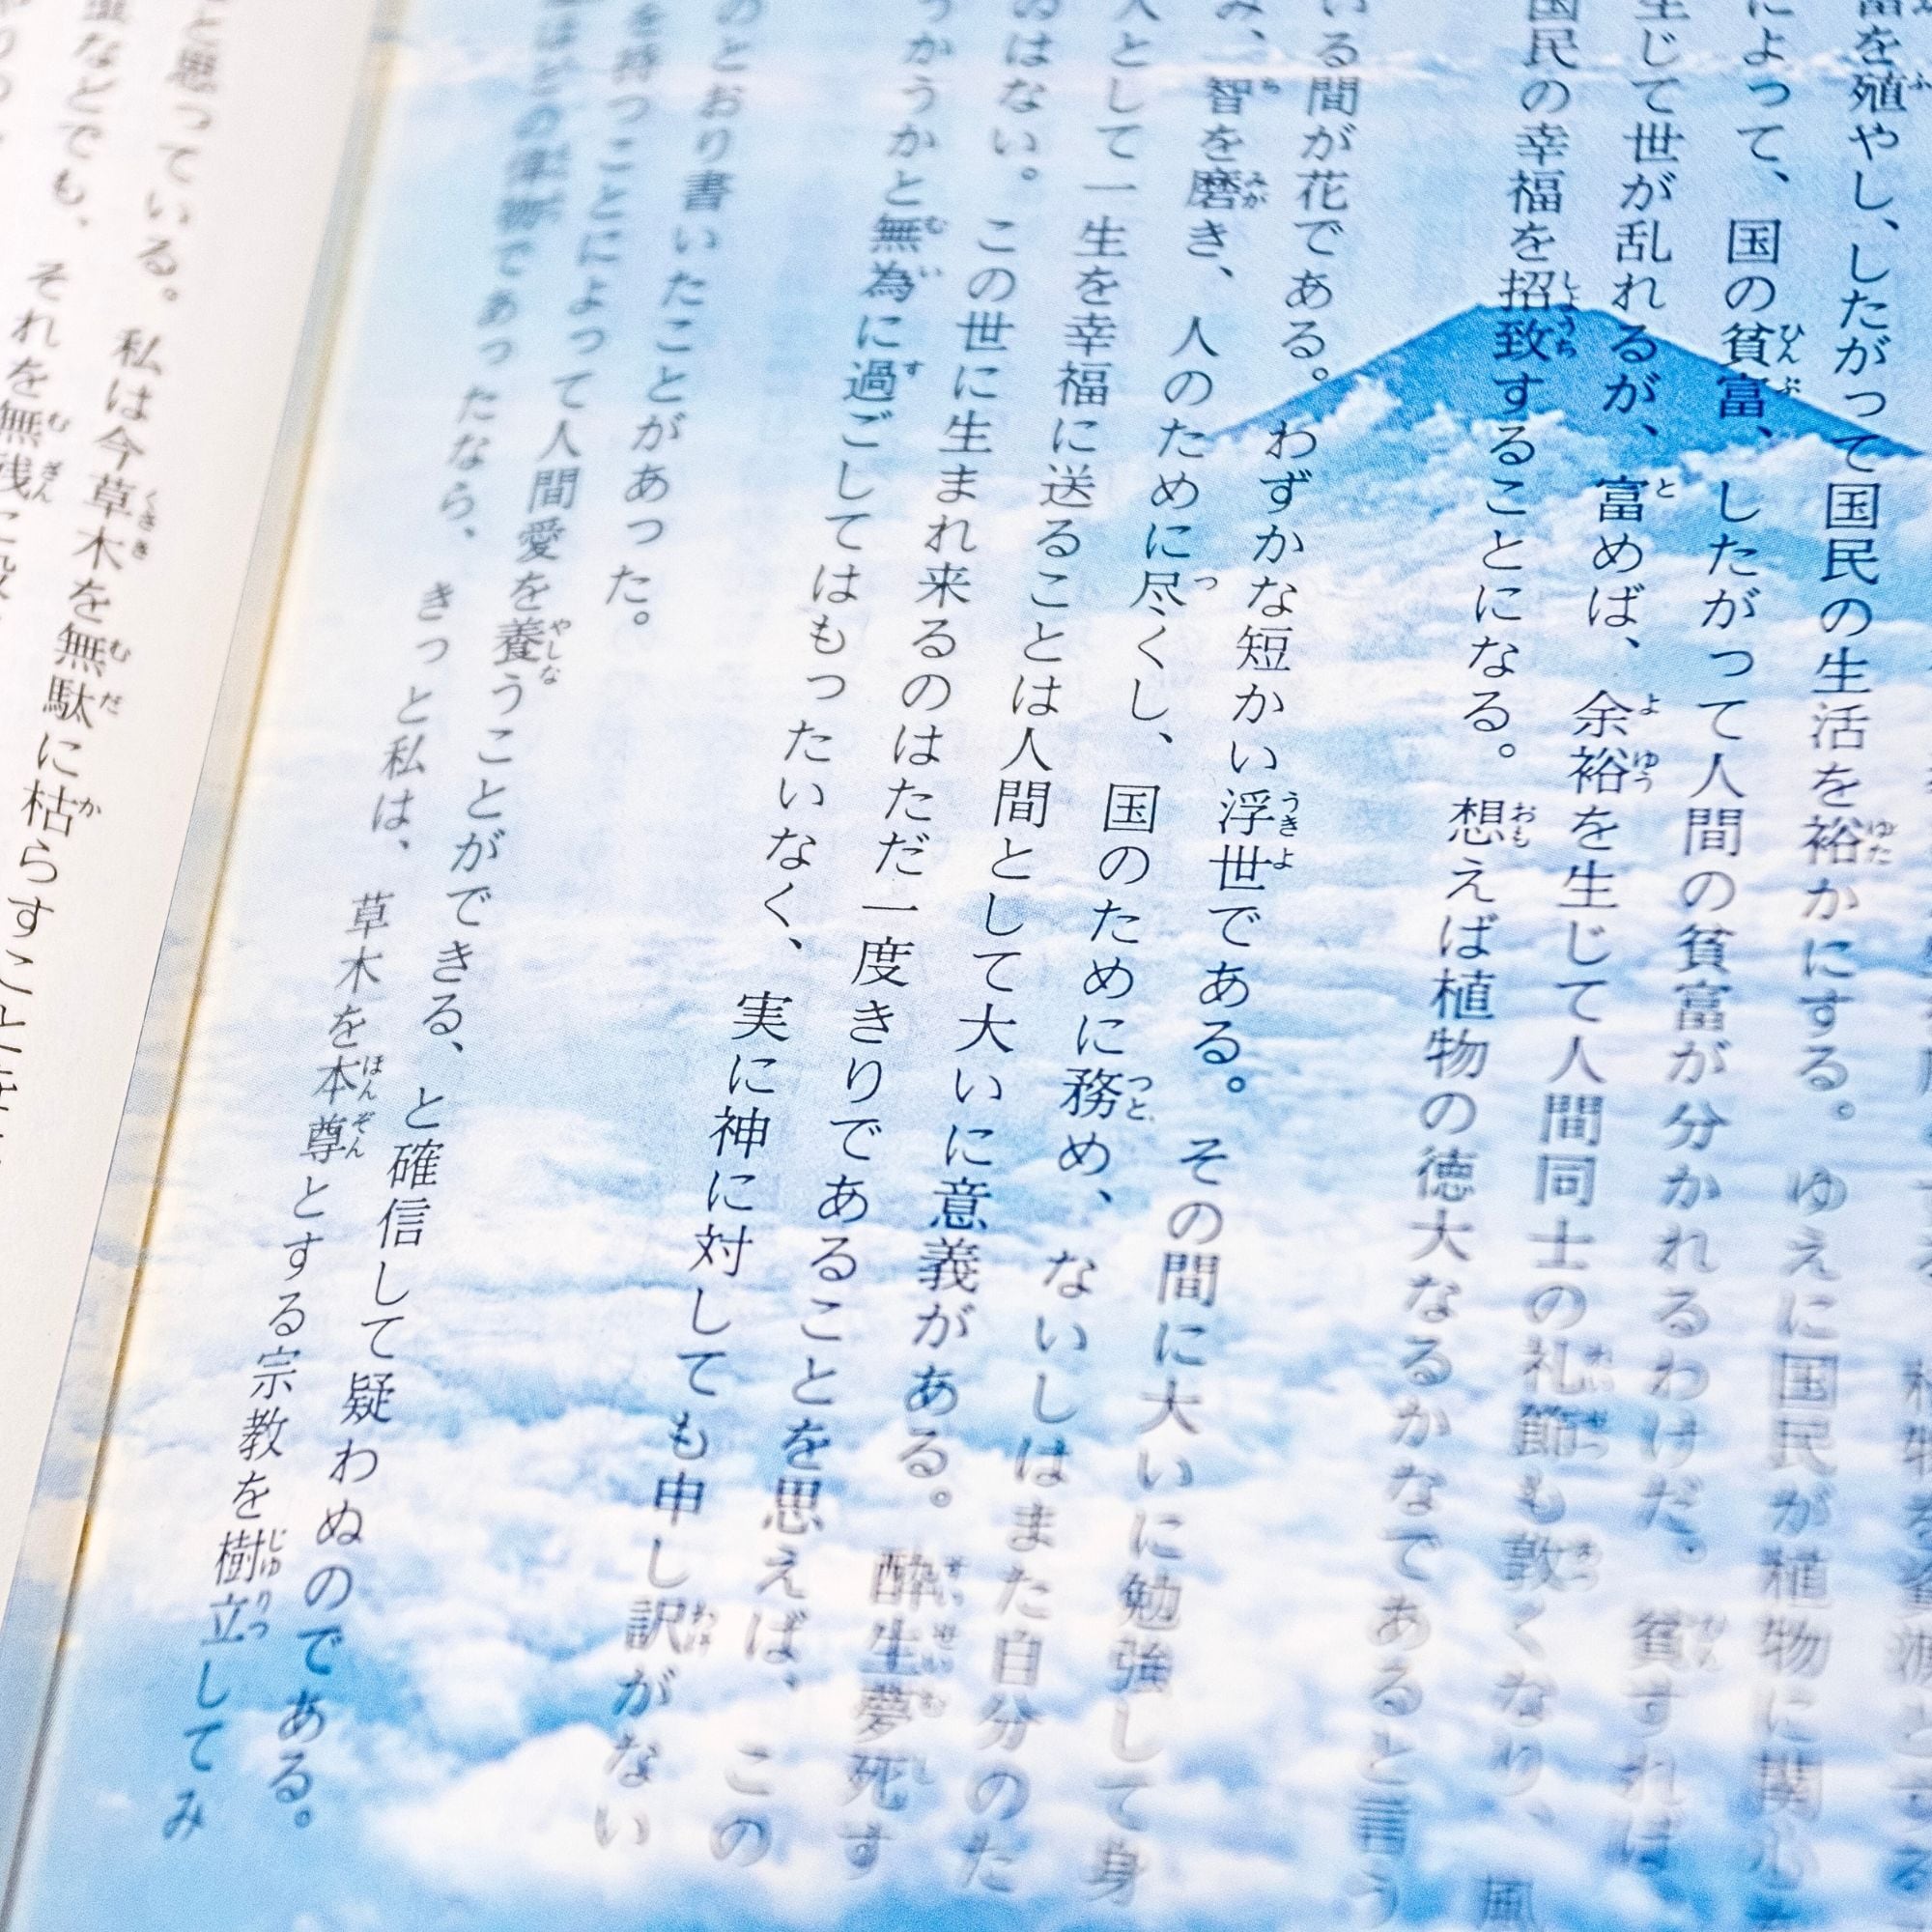 富を殖やし、したがって国民の生活を裕かにする。ゆえに国民が植物に関心
によって、国の貧富、したがって人間の貧富が分かれるわけだ。貧すれば
生じて世が乱れるが、富めば、余裕を生じて人間同士の礼節も敦くなり、風
国民の幸福を招致することになる。想えば植物の徳大なるかなであると言う
いる間が花である。わずかな短かい浮世である。その間に大いに勉強して身
み、智を磨き、人のために尽くし、国のために務め、ないしはまた自分のた
人として一生を幸福に送ることは人間として大いに意義がある。酔生夢死す
のはない。この世に生まれ来るのはただ一度きりであることを思えば、この
うかうかと無為に過ごしてはもったいなく、実に神に対しても申し訳がない
のとおり書いたことがあった。
を持つことによって人間愛を養うことができる、と確信して疑わぬのである。
はどの偉物であったなら、きっと私は、草木を本尊とする宗教を樹立してみ
と思っている。私は今草木を無駄に枯らすこと
などでも、それを無残に